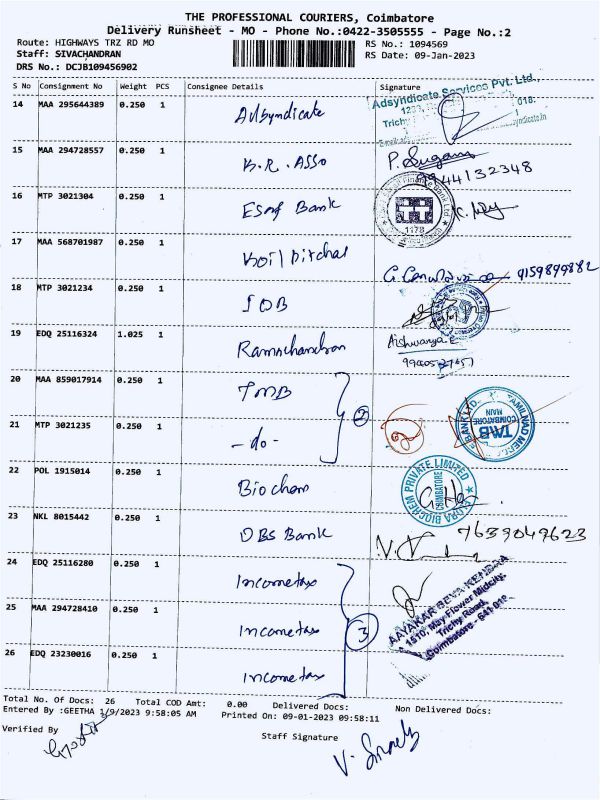 THE PROFESSIONAL COURIERS, Coimbatore
Delivery Runsheet - MO - Phone No.:0422-3505555 - Page No.:2
Route: HIGHWAYS TRZ RD MO
RS No.: 1094569
Staff: SIVACHANDRAN
RS Date: 09-Jan-2023
DRS No.: DCJB109456902
S No Consignment No Weight PCS Consignee Details Signature
14 MAA 295644389 0.250 1 Adsyndicate
Adsyndicate Services Pvt. Ltd.,
Trichy
15 MAA 294728557 0.250 1 K.R. Asso P. Sugan
9944132348
16 MTP 3021304 0.250 1 Esaf Bank
1178
17 MAA 568701987 0.250 1
9159899882
18 MTP 3021234 0.250 1 IOB
19 EDQ 25116324 1.025 1 Ramachandran Aishwarya E
20 MAA 859017914 0.250 1 TMB
2
TAMILNAD MERCANTILE BANK LTD
TMB
COIMBATORE
MAIN
21 MTP 3021235 0.250 1 -do-
22 POL 1915014 0.250 1 Biochem
BIOCHEM PRIVATE LIMITED
COIMBATORE
23 NKL 8015442 0.250 1 DBS Bank 7639049623
24 EDQ 25116280 0.250 1 Incometax
3
AAYAKAR SEVA KENDRA
1510, May Flower Midcity,
Trichy Road,
Coimbatore - 641 018
25 MAA 294728410 0.250 1 Incometax
26 EDQ 23230016 0.250 1 Incometax
Total No. Of Docs: 26 Total COD Amt: 0.00 Delivered Docs: Non Delivered Docs:
Entered By :GEETHA 1/9/2023 9:58:05 AM Printed On: 09-01-2023 09:58:11
Verified By
Staff Signature